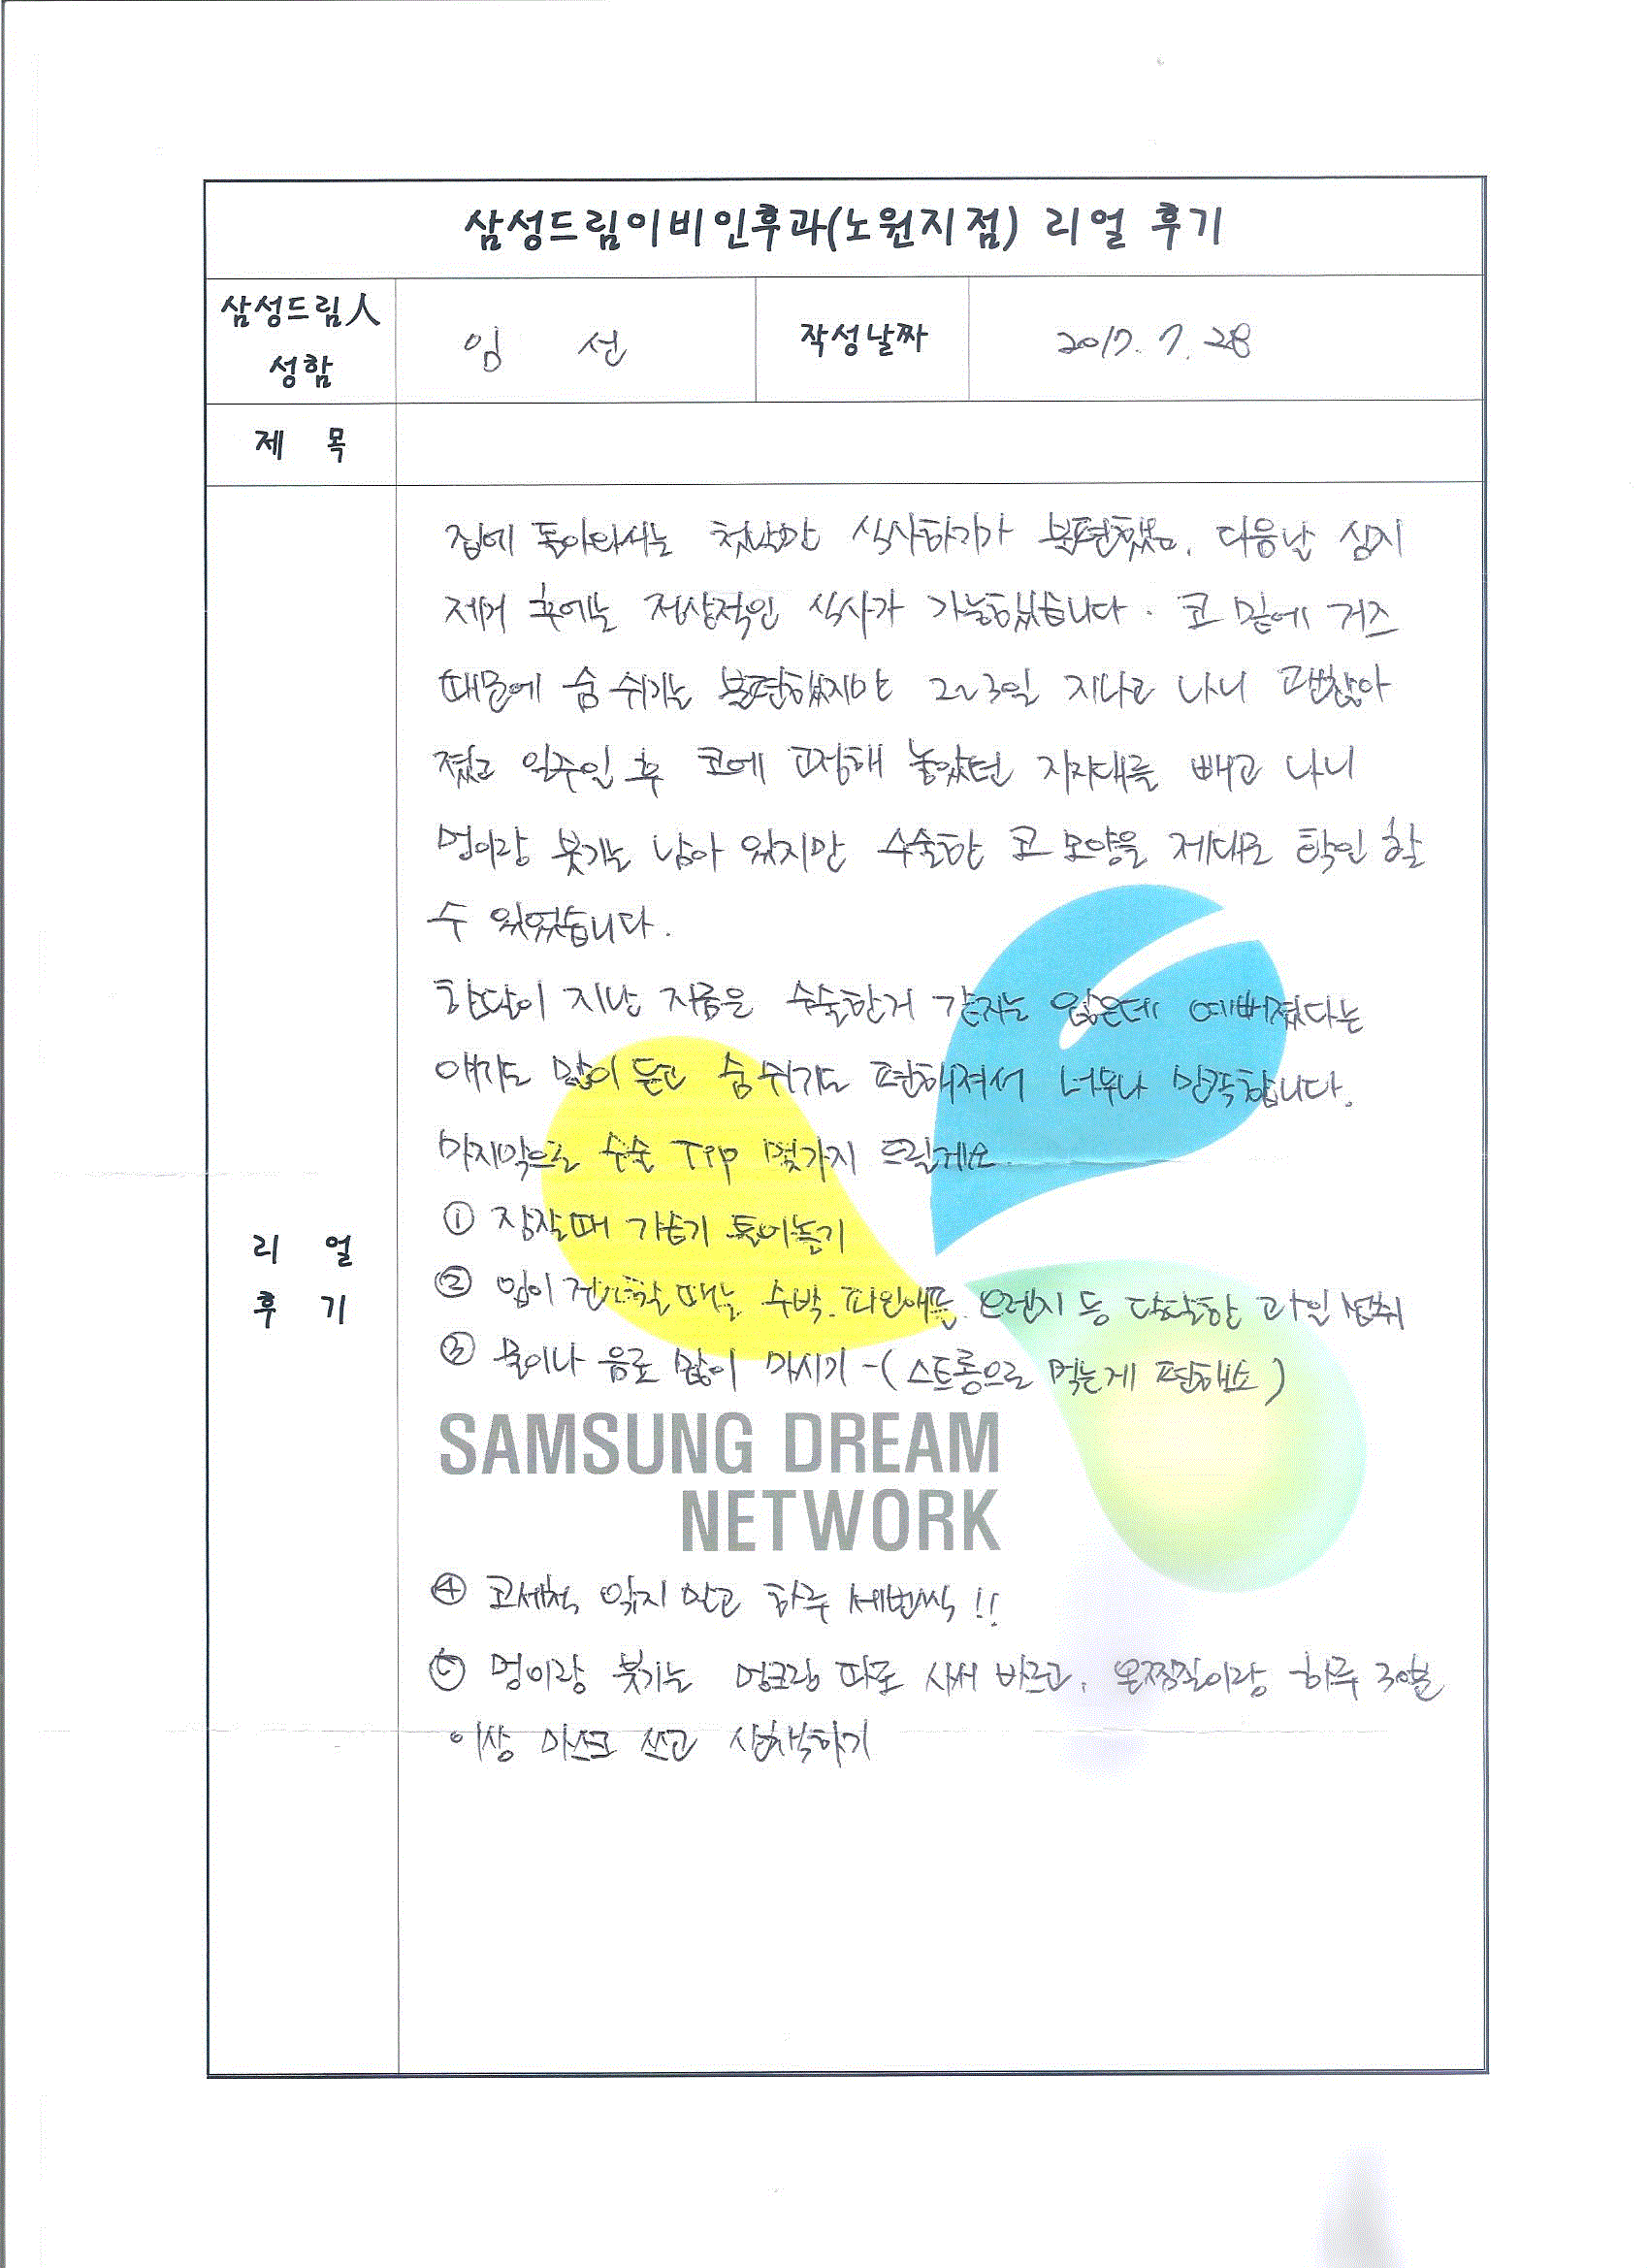 삼성드림이비인후과(노원지점) 리얼 후기
삼성드림人 성함
임 선
작성날짜
2017. 7. 28
제 목
리 얼 후 기
집에 돌아와서는 첫날만 식사하기가 불편했음. 다음날 심지
제거 후에는 정상적인 식사가 가능했습니다. 코 밑에 거즈
때문에 숨 쉬기는 불편했지만 2~3일 지나고 나니 괜찮아
졌고 일주일 후 코에 고정해 놓았던 지지대를 빼고 나니
멍이랑 붓기는 남아 있지만 수술한 코 모양을 제대로 확인 할
수 있었습니다.
한달이 지난 지금은 수술한거 같지는 않은데 예뻐졌다는
얘기도 많이 듣고 숨쉬기도 편해져서 너무나 만족합니다.
마지막으로 수술 Tip 몇가지 드릴게요.
① 잠잘때 가습기 틀어놓기
② 입이 건조할 때는 수박. 파인애플. 오렌지 등 달달한 과일 섭취
③ 물이나 음료 많이 마시기 -(스트롱으로 먹는게 편해요)
SAMSUNG DREAM
NETWORK
④ 코세척 잊지 말고 하루 세번씩 !!
⑤ 멍이랑 붓기는 멍크림 따로 사서 바르고, 온찜질이랑 하루 30분
이상 마스크 쓰고 산책하기